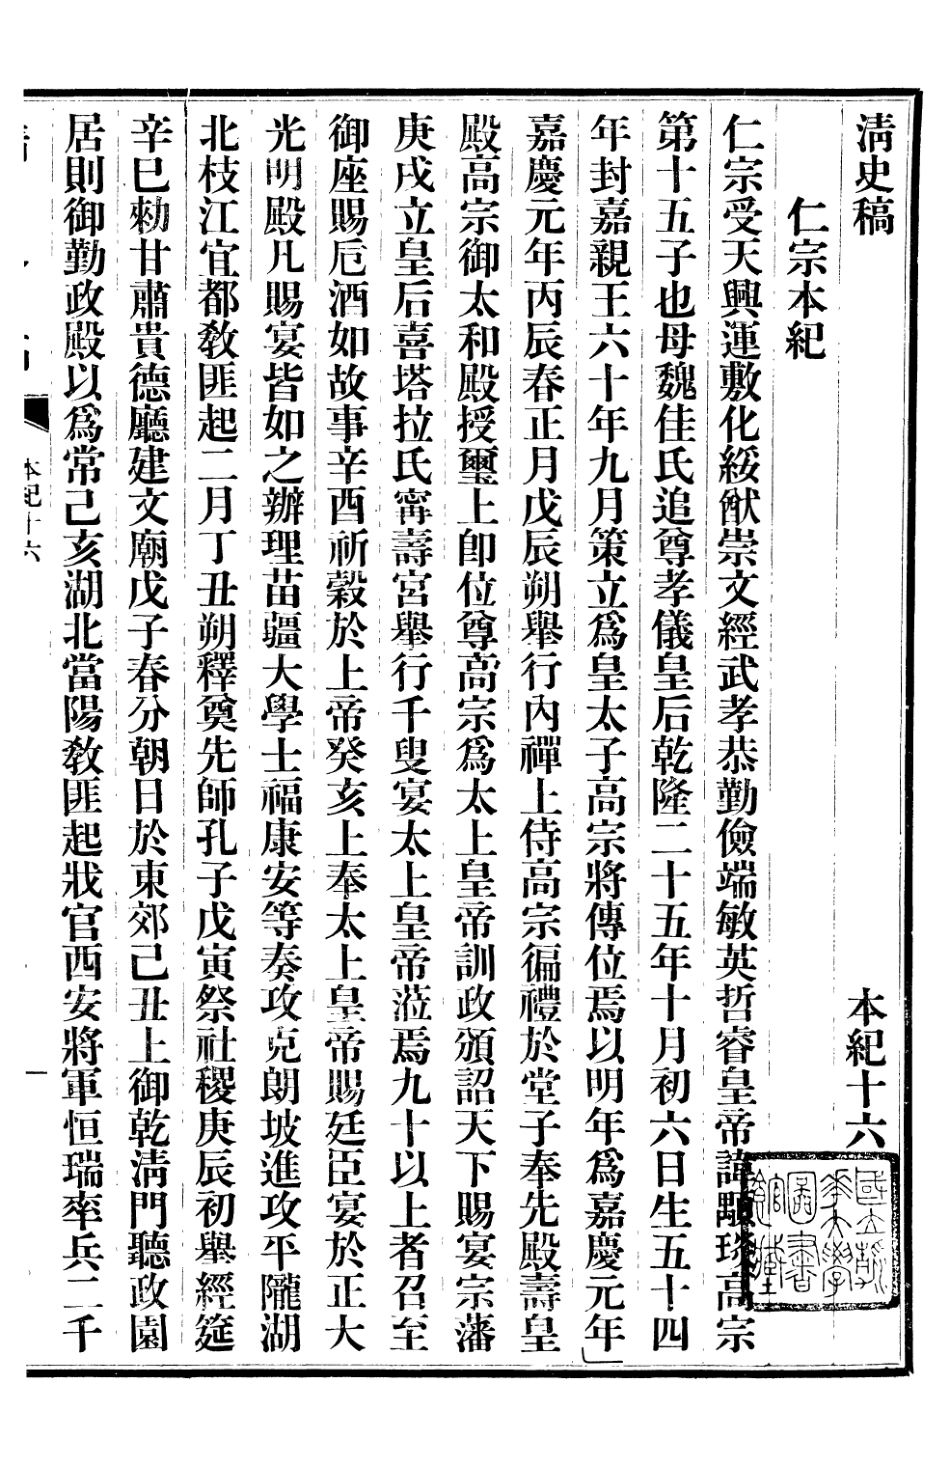 清史稿 本紀十六
仁宗本紀
仁宗受天興運敷化綏猷崇文經武孝恭勤儉端敏英哲睿皇帝諱顒琰高宗
第十五子也母魏佳氏追尊孝儀皇后乾隆二十五年十月初六日生五十四
年封嘉親王六十年九月策立爲皇太子高宗將傳位焉以明年爲嘉慶元年
嘉慶元年丙辰春正月戊辰朔舉行內禪上侍高宗徧禮於堂子奉先殿壽皇
殿高宗御太和殿授璽上卽位尊高宗爲太上皇帝訓政頒詔天下賜宴宗藩
庚戌立皇后喜塔拉氏寗壽宮舉行千叟宴太上皇帝蒞焉九十以上者召至
御座賜卮酒如故事辛酉祈穀於上帝癸亥上奉太上皇帝賜廷臣宴於正大
光明殿凡賜宴皆如之辦理苗疆大學士福康安等奏攻克朗坡進攻平隴湖
北枝江宜都敎匪起二月丁丑朔釋奠先師孔子戊寅祭社稷庚辰初舉經筵
辛巳勑甘肅貴德廳建文廟戊子春分朝日於東郊己丑上御乾淸門聽政園
居則御勤政殿以爲常己亥湖北當陽敎匪起戕官西安將軍恒瑞率兵二千
本紀十六
一
國立清
華大學
圖書
館藏